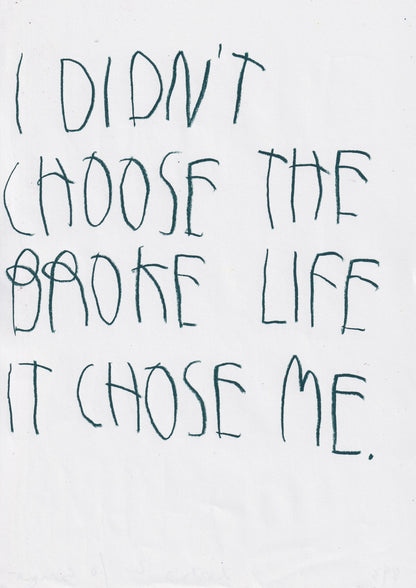 I DIDN'T
CHOOSE THE
BROKE LIFE
IT CHOSE ME.